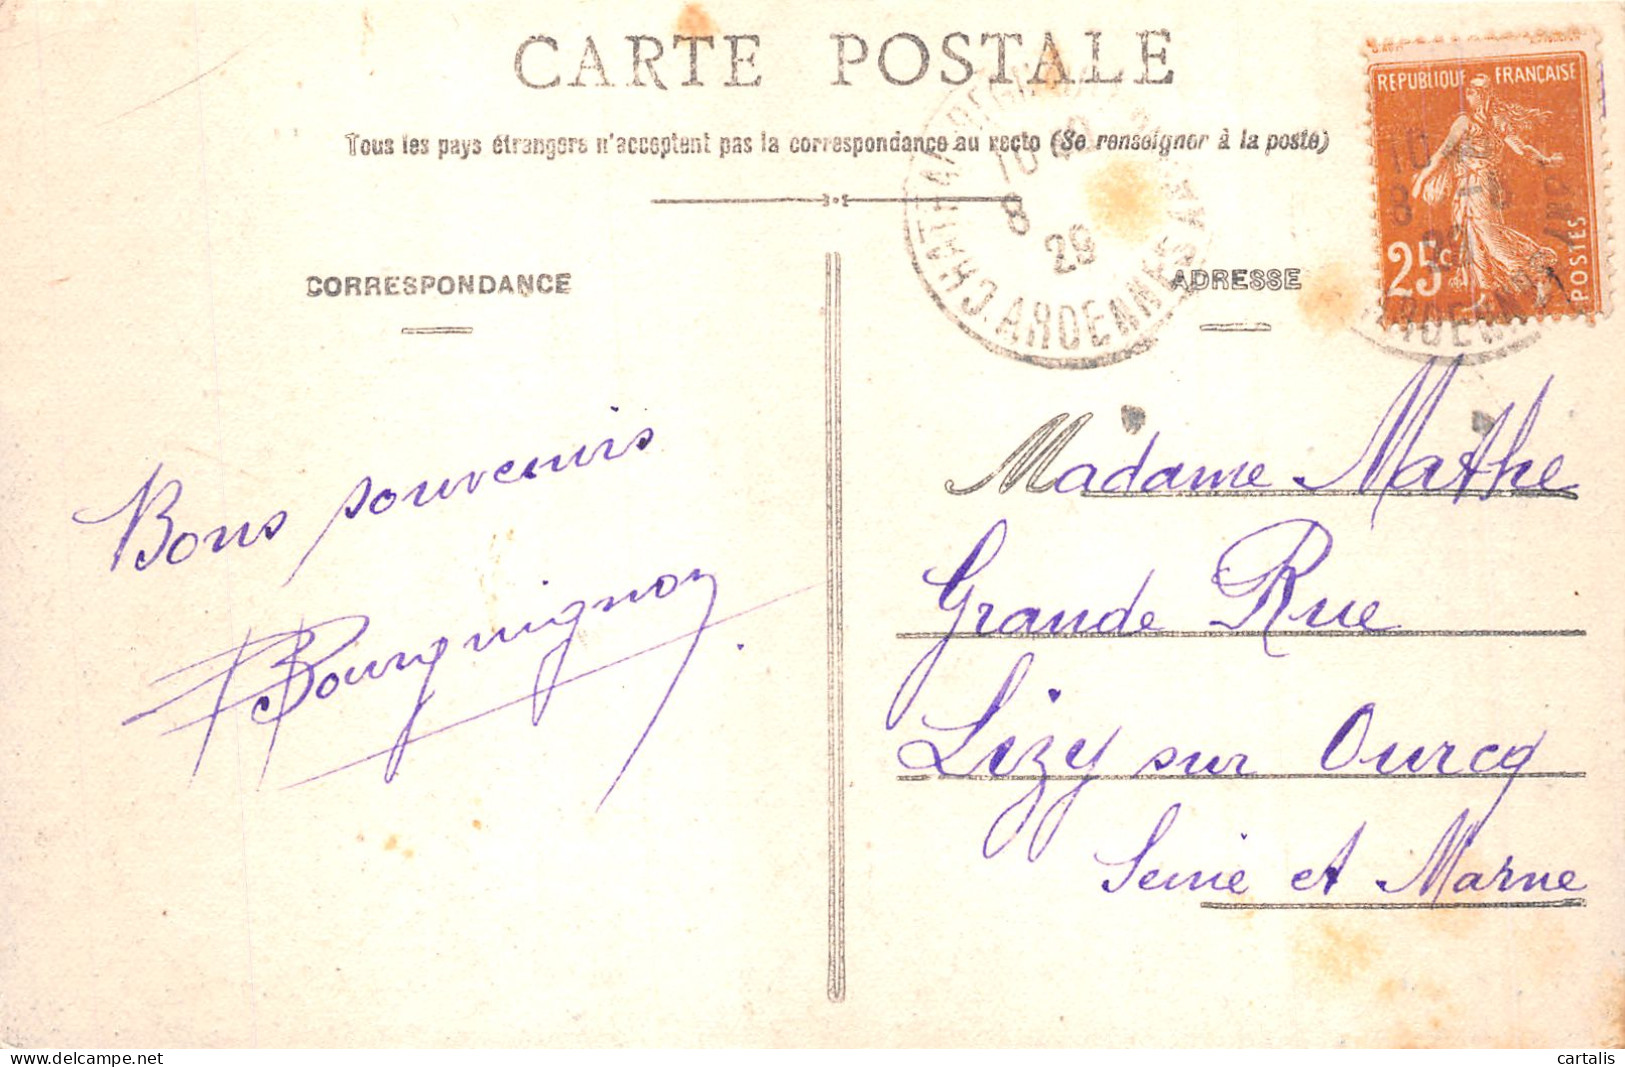 CARTE POSTALE
Tous les pays étrangers n'acceptent pas la correspondance au recto (Se renseigner à la poste)
CORRESPONDANCE
ADRESSE
REPUBLIQUE FRANÇAISE
25c
POSTES
8
29
ARDENNES
Bons souvenirs
Bourguignon
Madame Mathe
Grande Rue
Lizy sur Ourcq
Seine et Marne
cartalis